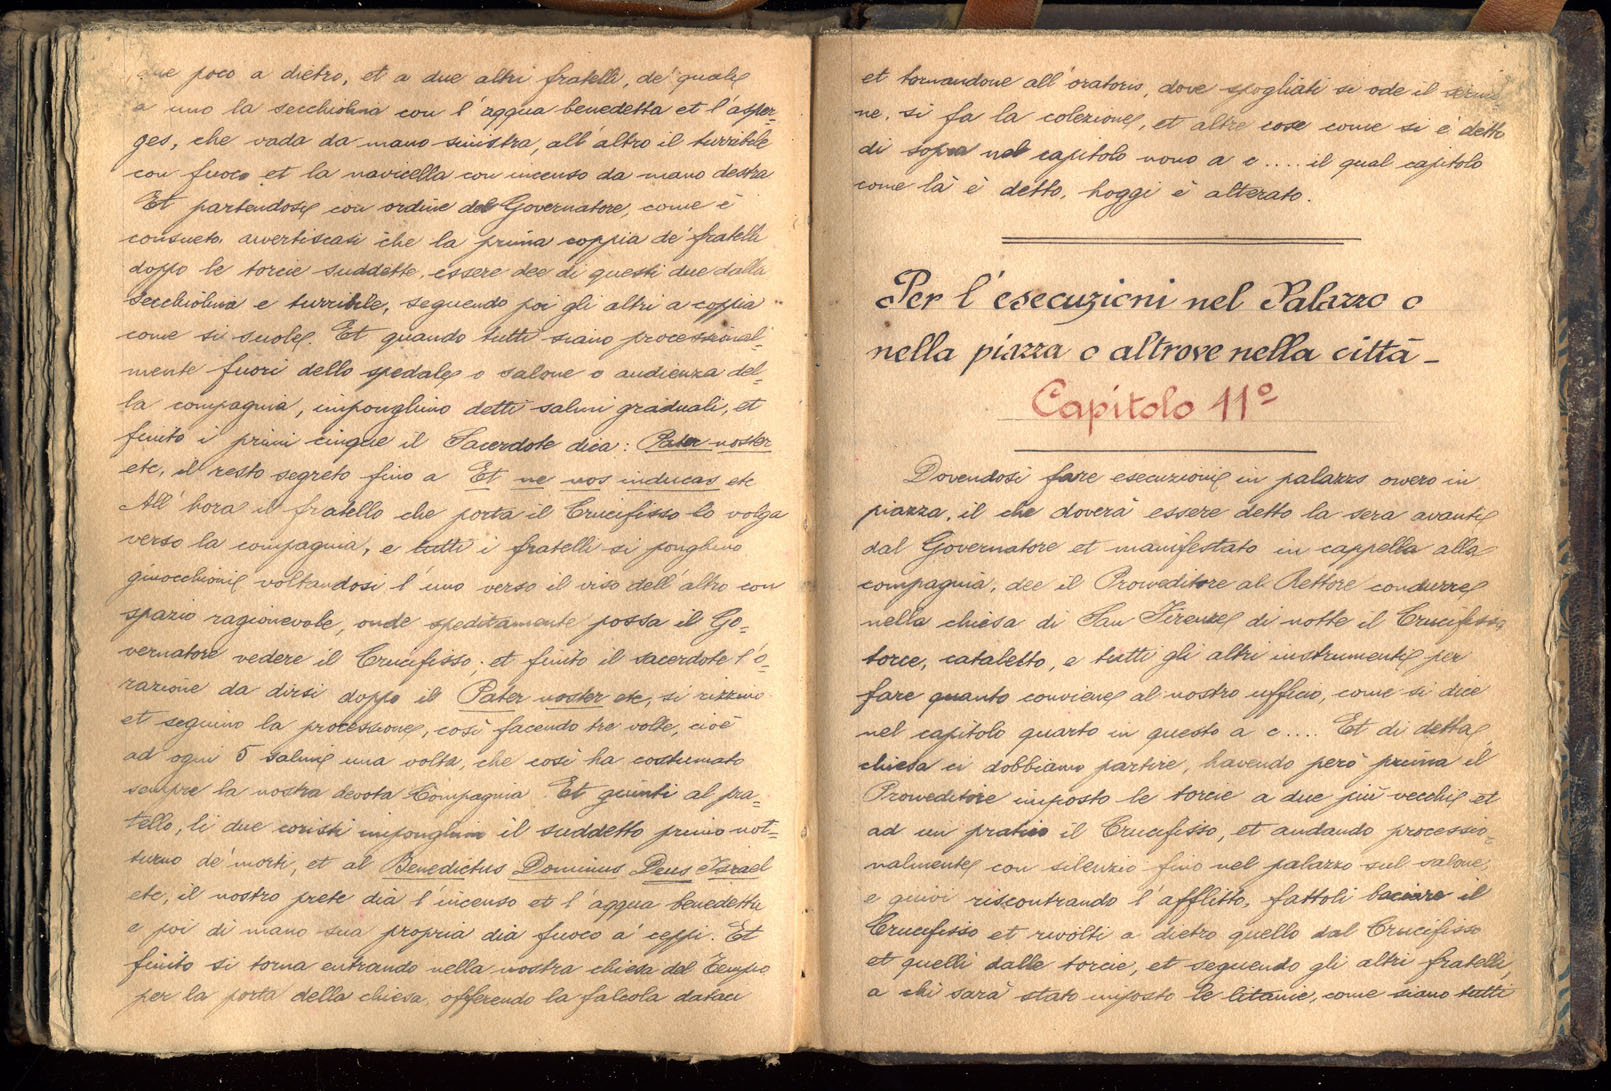 due poco a dietro, et a due altri fratelli, de' quali
a uno la secchiolina con l'aqqua benedetta et l'asper-
ges, che vada da mano sinistra, all'altro il turribile
con fuoco et la navicella con incenso da mano destra
Et partendosi con ordine del Governatore, come è
consueto, avvertiscasi che la prima coppia de' fratelli
doppo le torcie suddette, essere dee di questi due dalla
secchiolina e turribile, seguendo poi gli altri a coppia
come si suole. Et quando tutti siano processional-
mente fuori dello spedale o salone o audienza del-
la compagnia, imponghino detti salmi graduali, et
finito i primi cinque il Sacerdote dica: Pater noster
etc, il resto segreto fino a Et ne nos inducas etc
All'hora il fratello che porta il Crucifisso lo volga
verso la compagnia, e tutti i fratelli si ponghino
ginocchioni voltandosi l'uno verso il viso dell'altro con
spazio ragionevole, onde speditamente possa il Go-
vernatore vedere il Crucifisso; et finito il sacerdote l'o-
razione da dirsi doppo il Pater noster etc, si rizzino
et seguino la processione, così facendo tre volte, cioè
ad ogni 5 salmi una volta, che così ha costumato
sempre la nostra devota Compagnia. Et giunti al pra-
tello, li due coristi imponghino il suddetto primo not-
turno de' morti, et al Benedictus Dominus Deus Israel
etc, il nostro prete dia l'incenso et l'aqqua benedetta
e poi di mano sua propria dia fuoco a' ceppi. Et
finito si torna entrando nella nostra chiesa del Tempio
per la porta della chiesa, offerendo la falcola dataci
et tornandone all'oratorio, dove spogliati si ode il sermo-
ne, si fa la colezione, et altre cose come si è detto
di sopra nel capitolo nono a c.... il qual capitolo
come là è detto, hoggi è alterato.
Per l'esecuzioni nel Palazzo o
nella piazza o altrove nella città -
Capitolo 11º
Dovendosi fare esecuzione in palazzo ovvero in
piazza, il che doverà essere detto la sera avanti
dal Governatore et manifestato in cappella alla
compagnia, dee il Provveditore al Rettore condurre
nella chiesa di San Firenze di notte il Crucifisso
torce, cataletto, e tutti gli altri instrumenti per
fare quanto conviene al nostro ufficio, come si dice
nel capitolo quarto in questo a c.... Et di detta
chiesa ci dobbiamo partire, havendo però prima il
Provveditore imposto le torcie a due più vecchi et
ad un pratico il Crucifisso, et andando processio-
nalmente con silenzio fino nel palazzo sul salone
e quivi riscontrando l'afflitto, fattoli baciare il
Crucifisso et rivolti a dietro quello dal Crucifisso
et quelli dalle torcie, et seguendo gli altri fratelli,
a chi sarà stato imposto le litanie, come siano tutti